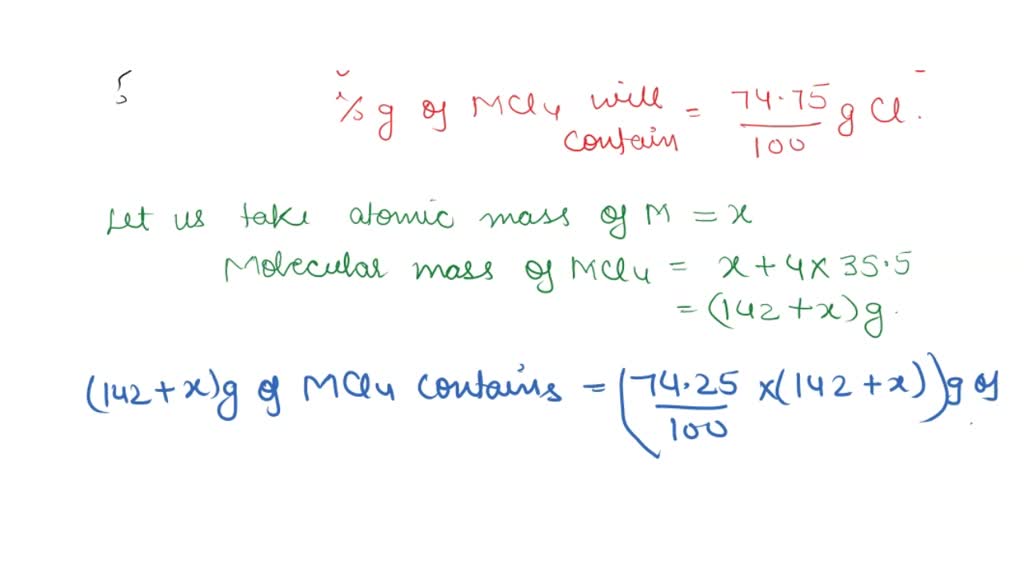 g of MCl4 will contain = 74.75/100 g Cl.
Let us take atomic mass of M = x
Molecular mass of MCl4 = x + 4 x 35.5
= (142 + x) g.
(142 + x) g of MCl4 contains = (74.25/100 x (142 + x)) g of